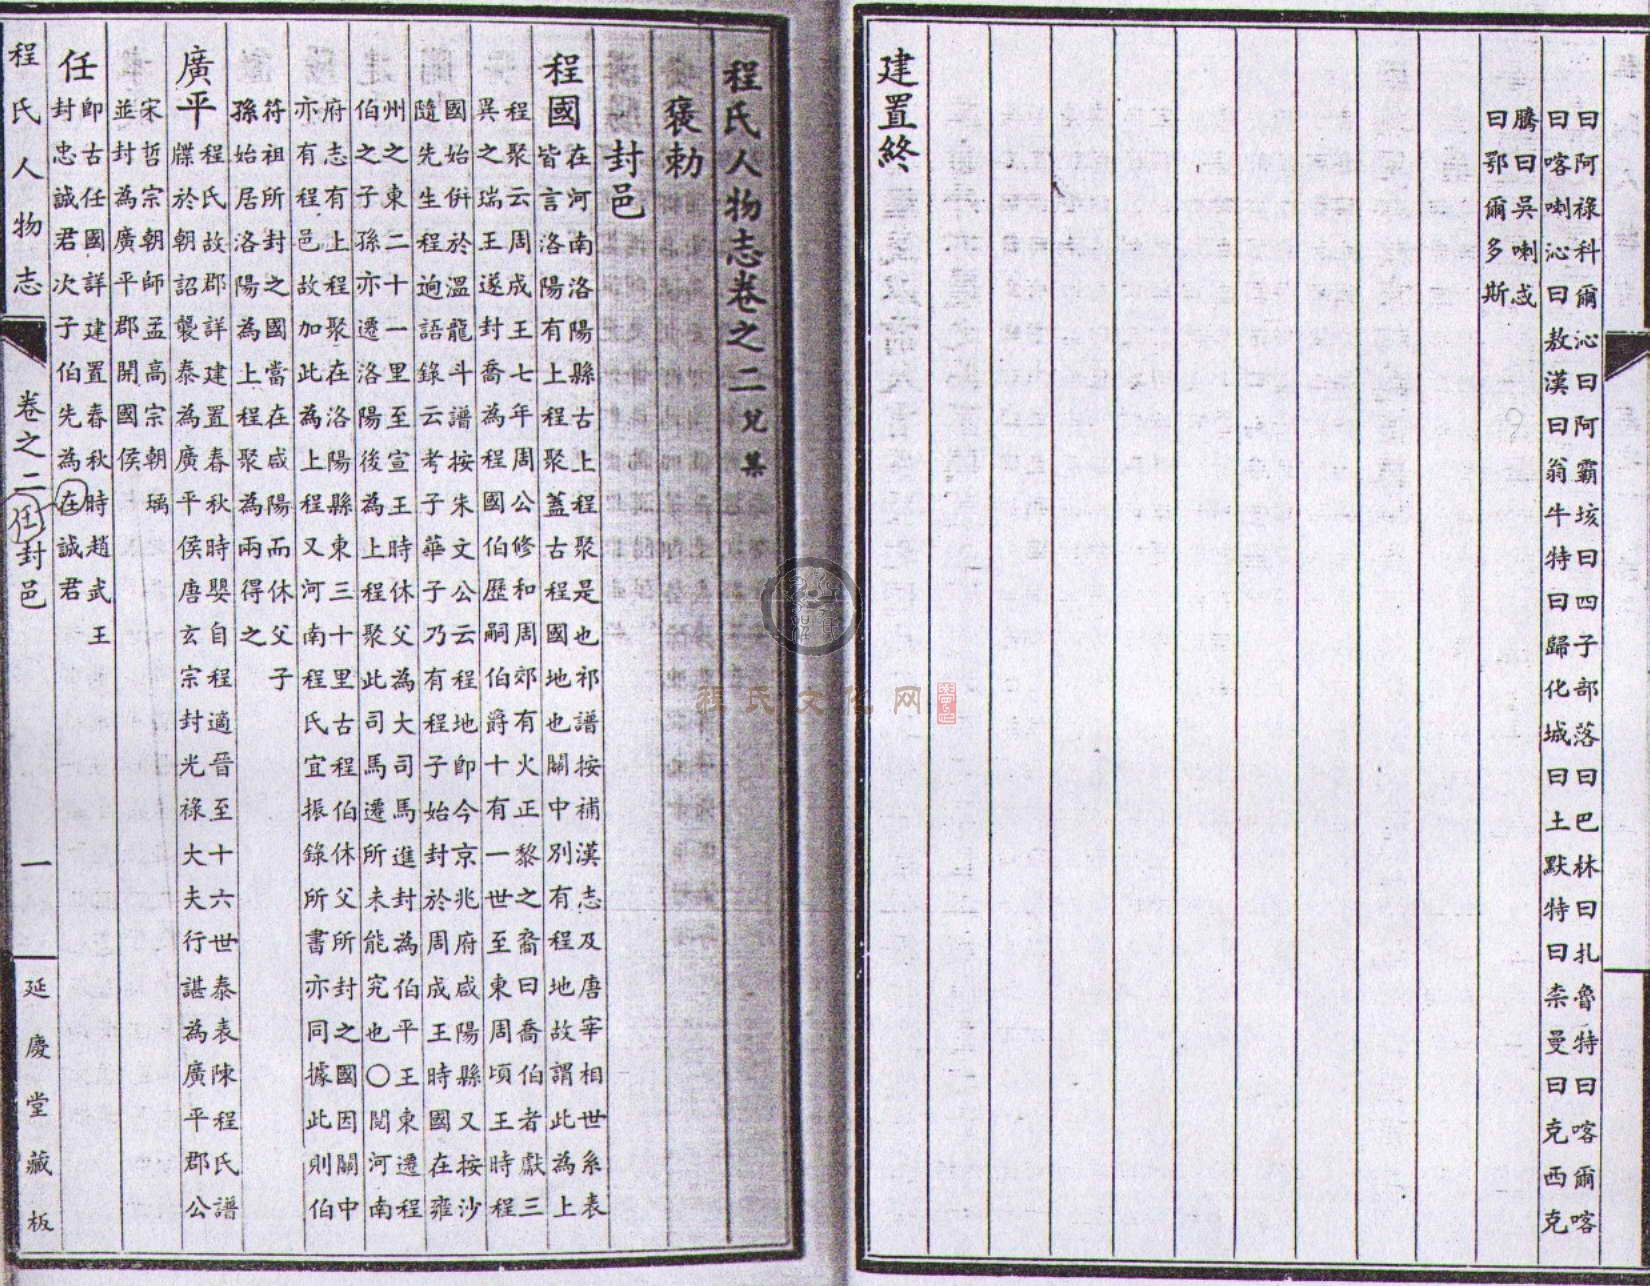 曰阿祿科爾沁曰阿霸垓曰四子部落曰巴林曰扎魯特曰喀爾喀
曰喀喇沁曰敖漢曰翁牛特曰歸化城曰土默特曰柰曼曰克西克
騰曰吳喇忒
曰鄂爾多斯
建置終
程氏人物志卷之二兌集
褒勅
封邑
程國
在河南洛陽縣古上程聚是也祁譜按補漢志及唐宰相世系表
皆言洛陽有上程聚蓋古程國地也關中別有程地故謂此為上
程聚云周成王七年周公修和周郊有火正黎之裔曰喬伯者獻三
異之瑞王遂封喬為程國伯歷嗣伯爵十有一世至東周頃王時程
國始併於溫龍斗譜按朱文公云程地即今京兆府咸陽縣又按沙
隨先生程逈語錄云考子華子乃有程子始封於周成王時國在雍
州之東二十一里至宣王時休父為大司馬進封為伯平王東遷程
伯之子孫亦遷洛陽後為上程聚此司馬遷所未能究也〇閱河南
府志有上程聚在洛陽縣東三十里古程伯休父所封之國因關中
亦有程邑故加此為上程又河南程氏宜振錄所書亦同據此則伯
符祖所封之國當在咸陽而休父子
孫始居洛陽為上程聚為兩得之
廣平
程氏故郡詳建置春秋時嬰自程適晉至十六世泰表陳程氏譜
牒於朝詔襲泰為廣平侯唐玄宗封光祿大夫行諶為廣平郡公
宋哲宗朝師孟高宗朝瑀
並封為廣平郡開國侯
任
即古任國詳建置春秋時趙武王
封忠誠君次子伯先為在誠君
任
程氏人物志
卷之二
封邑
一
延慶堂藏板
程氏文化网